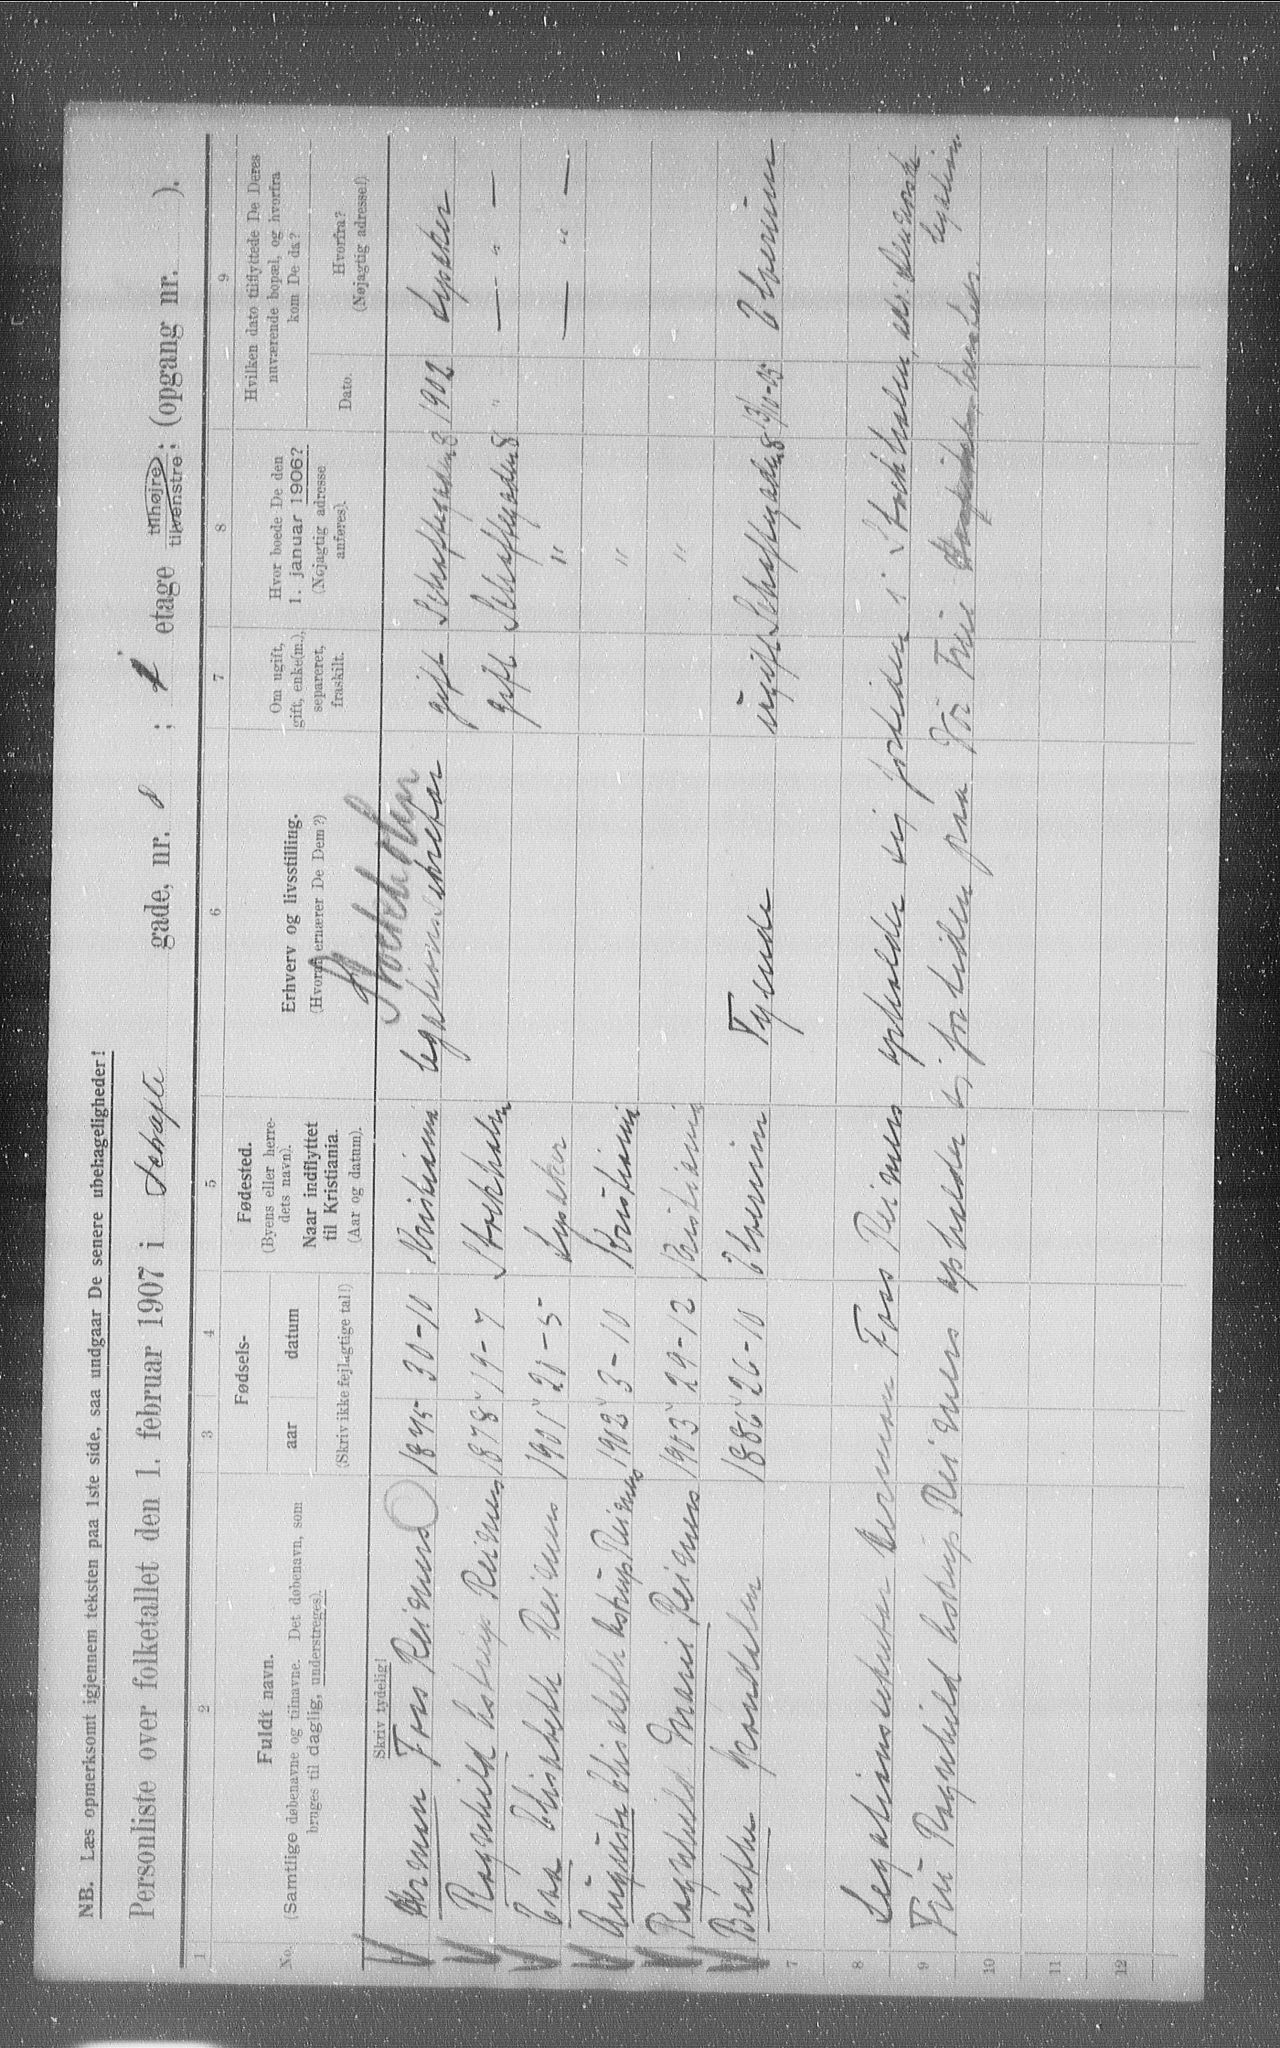 NB. Læs opmerksomt igjennem teksten paa 1ste side, saa undgaar De senere ubehageligheder!
Personliste over folketallet den 1. februar 1907 i Schæfte gade, nr. 8 ; etage tilhøjre tilvenstre ; (opgang nr. ).
1 2 3 4 5 6 7 8 9
No.
Fuldt navn.
(Samtlige døbenavne og tilnavne. Det døbenavn, som
bruges til daglig, understreges).
Skriv tydelig!
Fødsels-
aar datum
(Skriv ikke fejlagtige tal!)
Fødested.
(Byens eller herre-
dets navn).
Naar indflyttet
til Kristiania.
(Aar og datum).
Erhverv og livsstilling.
(Hvoraf ernærer De Dem?)
Om ugift,
gift, enke(m.),
separeret,
fraskilt.
Hvor boede De den
1. januar 1906?
(Nøjagtig adresse
anføres).
Hvilken dato tilflyttede De Deres
nuværende bopæl, og hvorfra
kom De da?
Dato.
Hvorfra?
(Nøjagtig adresse!)
Stockholm
Herman Foss Reimers 1875 30-10 Kristiania legationssekretær gift Schæftegaden 8 1902 Lysaker
Ragnhild Astrup Reimers 1878 19-7 Stockholm gift Schæftegaden 8 " — " —
Elisabeth Reimers 1901 20-5 Lysaker " — " —
Auguste Elisabeth Astrup Reimers 1902 3-10 Kristiania "
Ragnhild Marie Reimers 1903 29-12 Kristiania "
1886 26-10 Elverum Tyende ugift Schæftegaden 8 Elverum
7
8 Legationssekretær Herman Foss Reimers opholder sig fortiden i Stockholm,
9 Fru Ragnhild Astrup Reimers opholder sig for tiden paa
10
11
12